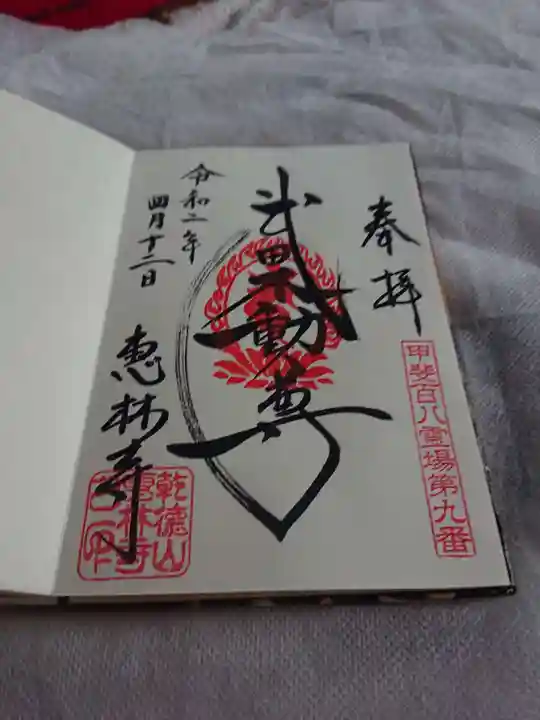 奉拝
甲斐百八霊場第九番
武田不動尊
令和二年
四月十二日
恵林寺
乾徳山
恵林寺